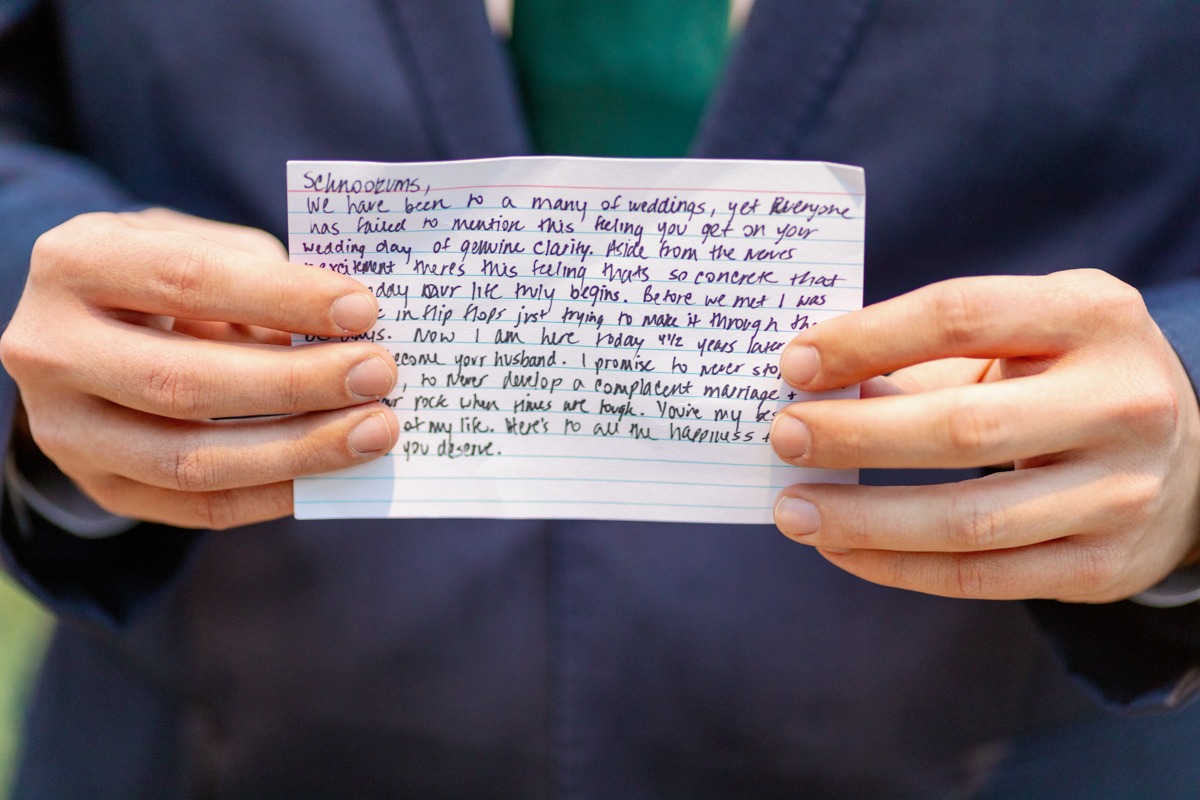 Schnookums,
We have been to a many of weddings, yet Everyone
has failed to mention this feeling you get on your
wedding day of genuine clarity. Aside from the nerves
excitement theres this feeling thats so concrete that
our life truly begins. Before we met I was
in flip flops just trying to make it through the
days. Now I am here today 4 1/2 years later
become your husband. I promise to never
to never develop a complacent marriage +
rock when times are tough. You're my
of my life. Here's to all the happiness
you deserve.